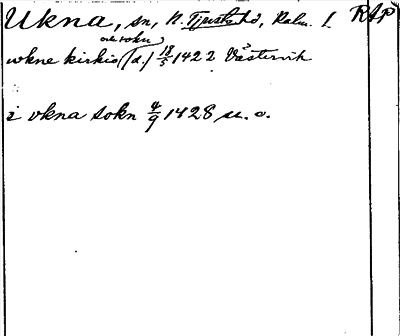 Ukna, sn, N. Tjusts hd, Kalm. l. RAP
ecc sokn
wkne kirkio (d.) 18/5 1422 Västervik
i vkna sokn 4/9 1428 u. o.